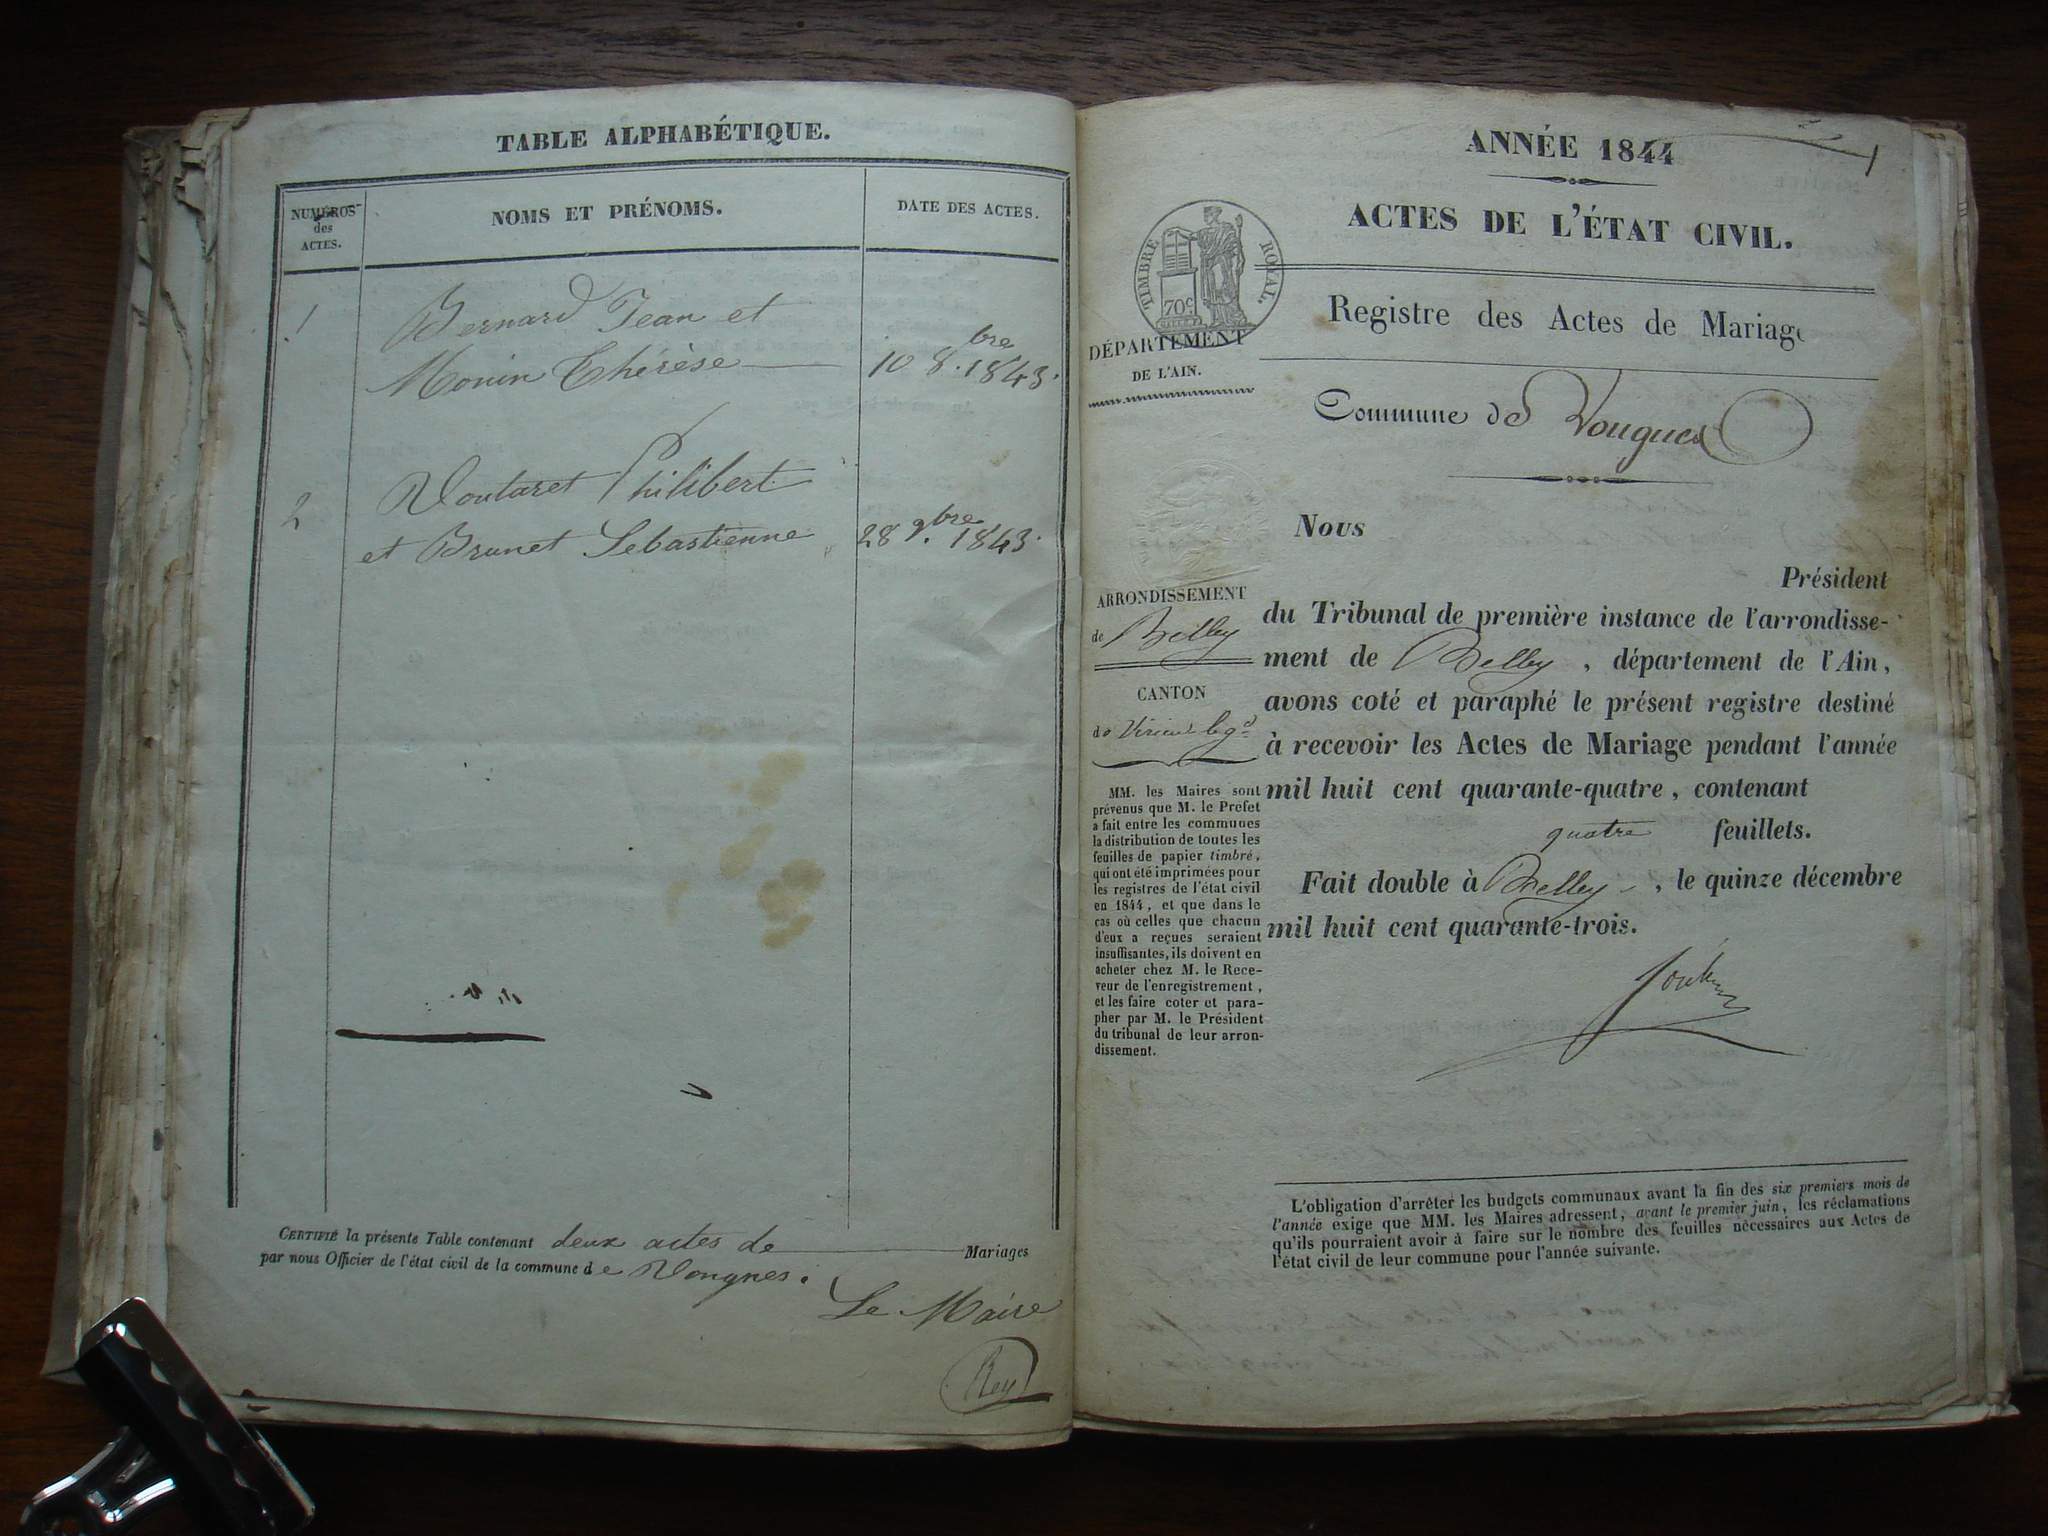 TABLE ALPHABÉTIQUE.
NUMÉROS
des
ACTES.
NOMS ET PRÉNOMS.
DATE DES ACTES.
1
Bernard Jean et
Monin Thérèse
10 8.bre 1843.
2
Voutaret Philibert
et Brunet Sebastienne
28 9.bre 1843.
CERTIFIÉ la présente Table contenant deux actes de Mariages
par nous Officier de l'état civil de la commune de Vongnes.
Le Maire
Rey
ANNÉE 1844
1
ACTES DE L'ÉTAT CIVIL.
TIMBRE ROYAL.
70c
Registre des Actes de Mariage
DÉPARTEMENT
DE L'AIN.
Commune de Vongnes
Nous
Président
du Tribunal de première instance de l'arrondisse-
ment de Belley, département de l'Ain,
avons coté et paraphé le présent registre destiné
à recevoir les Actes de Mariage pendant l'année
mil huit cent quarante-quatre, contenant
quatre feuillets.
Fait double à Belley, le quinze décembre
mil huit cent quarante-trois.
ARRONDISSEMENT
de Belley
CANTON
de Virieu le gd
MM. les Maires sont
prévenus que M. le Préfet
a fait entre les communes
la distribution de toutes les
feuilles de papier timbré,
qui ont été imprimées pour
les registres de l'état civil
en 1844, et que dans le
cas où celles que chacun
d'eux a reçues seraient
insuffisantes, ils doivent en
acheter chez M. le Rece-
veur de l'enregistrement,
et les faire coter et para-
pher par M. le Président
du tribunal de leur arron-
dissement.
L'obligation d'arrêter les budgets communaux avant la fin des six premiers mois de
l'année exige que MM. les Maires adressent, avant le premier juin, les réclamations
qu'ils pourraient avoir à faire sur le nombre des feuilles nécessaires aux Actes de
l'état civil de leur commune pour l'année suivante.